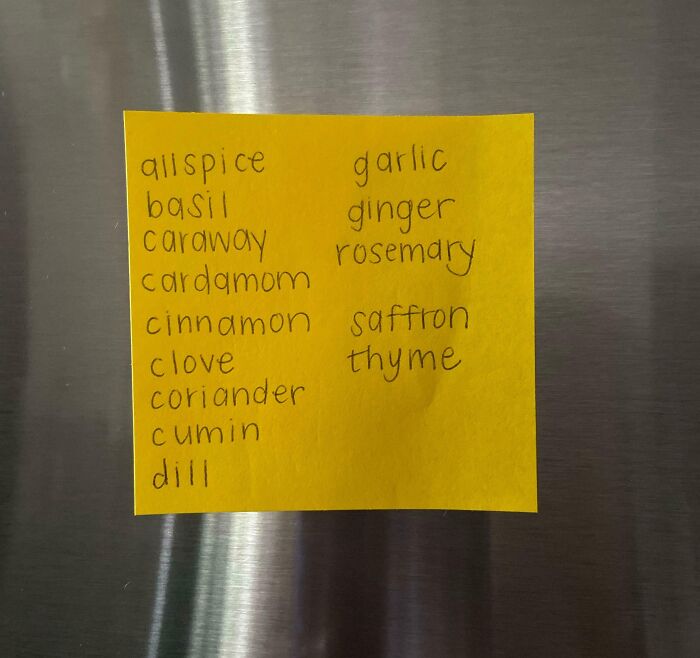 allspice
basil
caraway
cardamom
cinnamon
clove
coriander
cumin
dill
garlic
ginger
rosemary
saffron
thyme